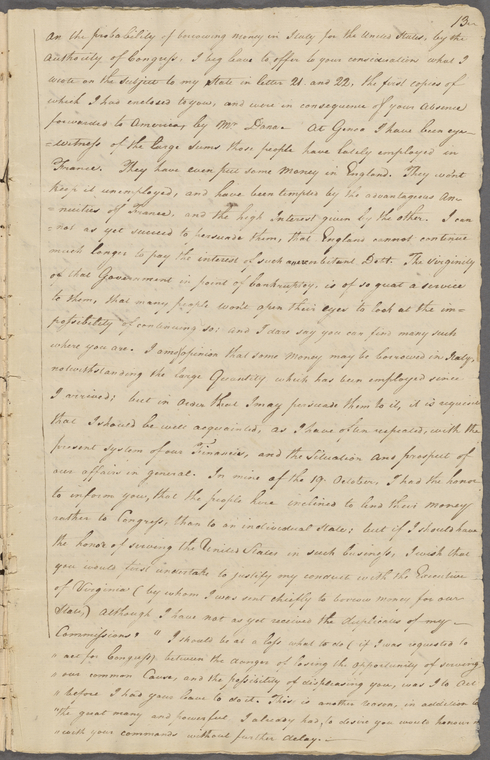 13.
on the probability of borrowing money in Italy for the United States, by the
authority of Congress. I beg leave to offer to your consideration what I
wrote on the subject to my State in letter 21. and 22, the first copies of
which I had enclosed to you, and were in consequence of your absence
forwarded to America, by Mr. Dana. At Genoa I have been eye-
=witness of the large sums those people have lately employed in
France. They have even put some money in England. They wont
keep it unemployed, and have been tempted by the advantageous An-
=nuities of France, and the high Interest given by the other. I can
=not as yet succeed to persuade them, that England cannot continue
much longer to pay the interest of such an exorbitant Debt. The virginity
of that Government in point of bankruptcy, is of so great a service
to them, that many people won't open their eyes to look at the im=
possibility of continuing so: and I dare say you can find many such
where you are. I am of opinion that some money may be borrowed in Italy,
notwithstanding the large Quantity which has been employed since
I arrived; but in order that I may persuade them to it, it is required
that I should be well acquainted, as I have often repeated, with the
present System of our Finances, and the situation and prospect of
our affairs in general. In mine of the 19. October, I had the honor
to inform you, that the people here inclined to lend their money
rather to Congress, than to an individual State: but if I should have
the honor of serving the United States in such business, I wish that
you would first undertake to justify my conduct with the Executive
of Virginia (by whom I was sent chiefly to borrow money for our
State,) although I have not as yet received the duplicates of my
Commissions: " I should be at a loss what to do (if I was requested to
" act for Congress) between the danger of losing the opportunity of serving
" our common Cause, and the possibility of displeasing you, was I to act
" before I had your leave to do it. This is another reason, in addition to
"the great many and powerful I already had, to desire you would honour me
" with your commands without further delay.